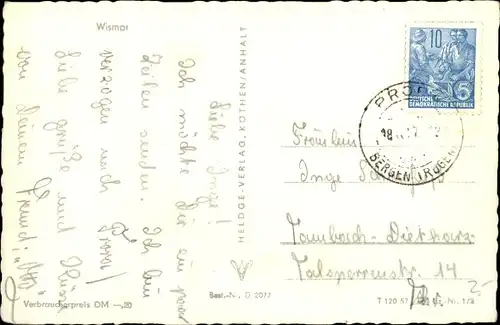 Wismar
Liebe Inge!
Ich möchte Dir ein paar
Zeilen senden. Ich bin
verzogen nach Prora!
Liebe grüße und Küsse
von Deinem Freund:
Verbraucherpreis DM —,20
HELDGE-VERLAG, KÖTHEN/ANHALT
Best.-Nr. D 2077
10
5
DEUTSCHE
DEMOKRATISCHE REPUBLIK
PRO
18
BERGEN (RÜGEN)
Fräulein
Inge
Tambach-Dietharz
Talsperrenstr. 14
T 120 57
Nr. 1/8